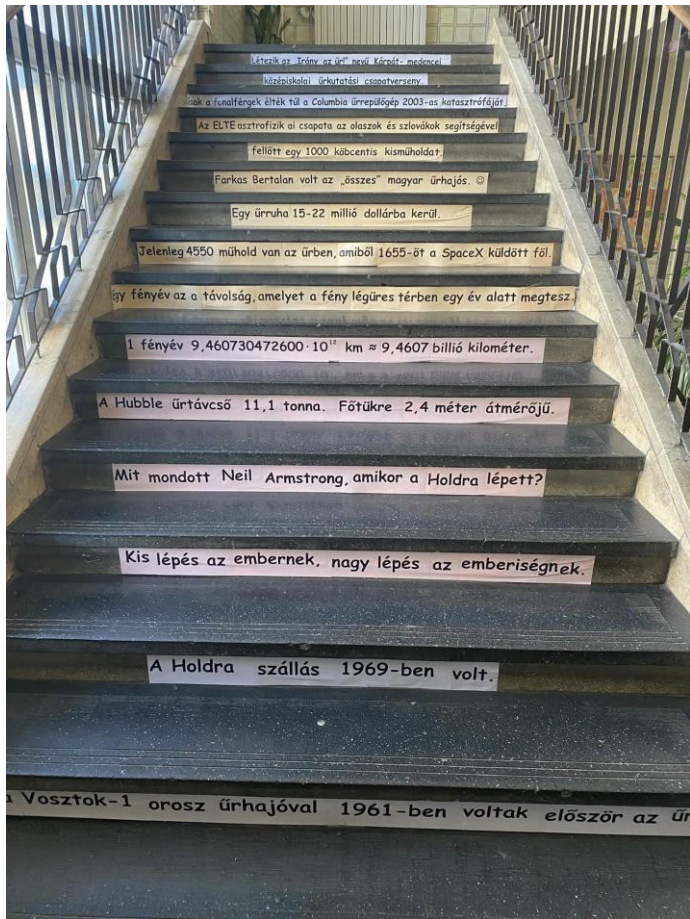 Létezik az "Irány az űr!" nevű Kárpát- medencei
középiskolai űrkutatási csapatverseny.
csak a fonalférgek élték túl a Columbia űrrepülőgép 2003-as katasztrófáját.
Az ELTE asztrofizik ai csapata az olaszok és szlovákok segítségével
fellőtt egy 1000 köbcentis kisműholdat.
Farkas Bertalan volt az „összes" magyar űrhajós. ☺
Egy űrruha 15-22 millió dollárba kerül.
Jelenleg 4550 műhold van az űrben, amiből 1655-öt a SpaceX küldött föl.
Egy fényév az a távolság, amelyet a fény légüres térben egy év alatt megtesz.
1 fényév 9,460730472600·10¹² km ≈ 9,4607 billió kilométer.
A Hubble űrtávcső 11,1 tonna. Főtükre 2,4 méter átmérőjű.
Mit mondott Neil Armstrong, amikor a Holdra lépett?
Kis lépés az embernek, nagy lépés az emberiségnek.
A Holdra szállás 1969-ben volt.
a Vosztok-1 orosz űrhajóval 1961-ben voltak először az űr